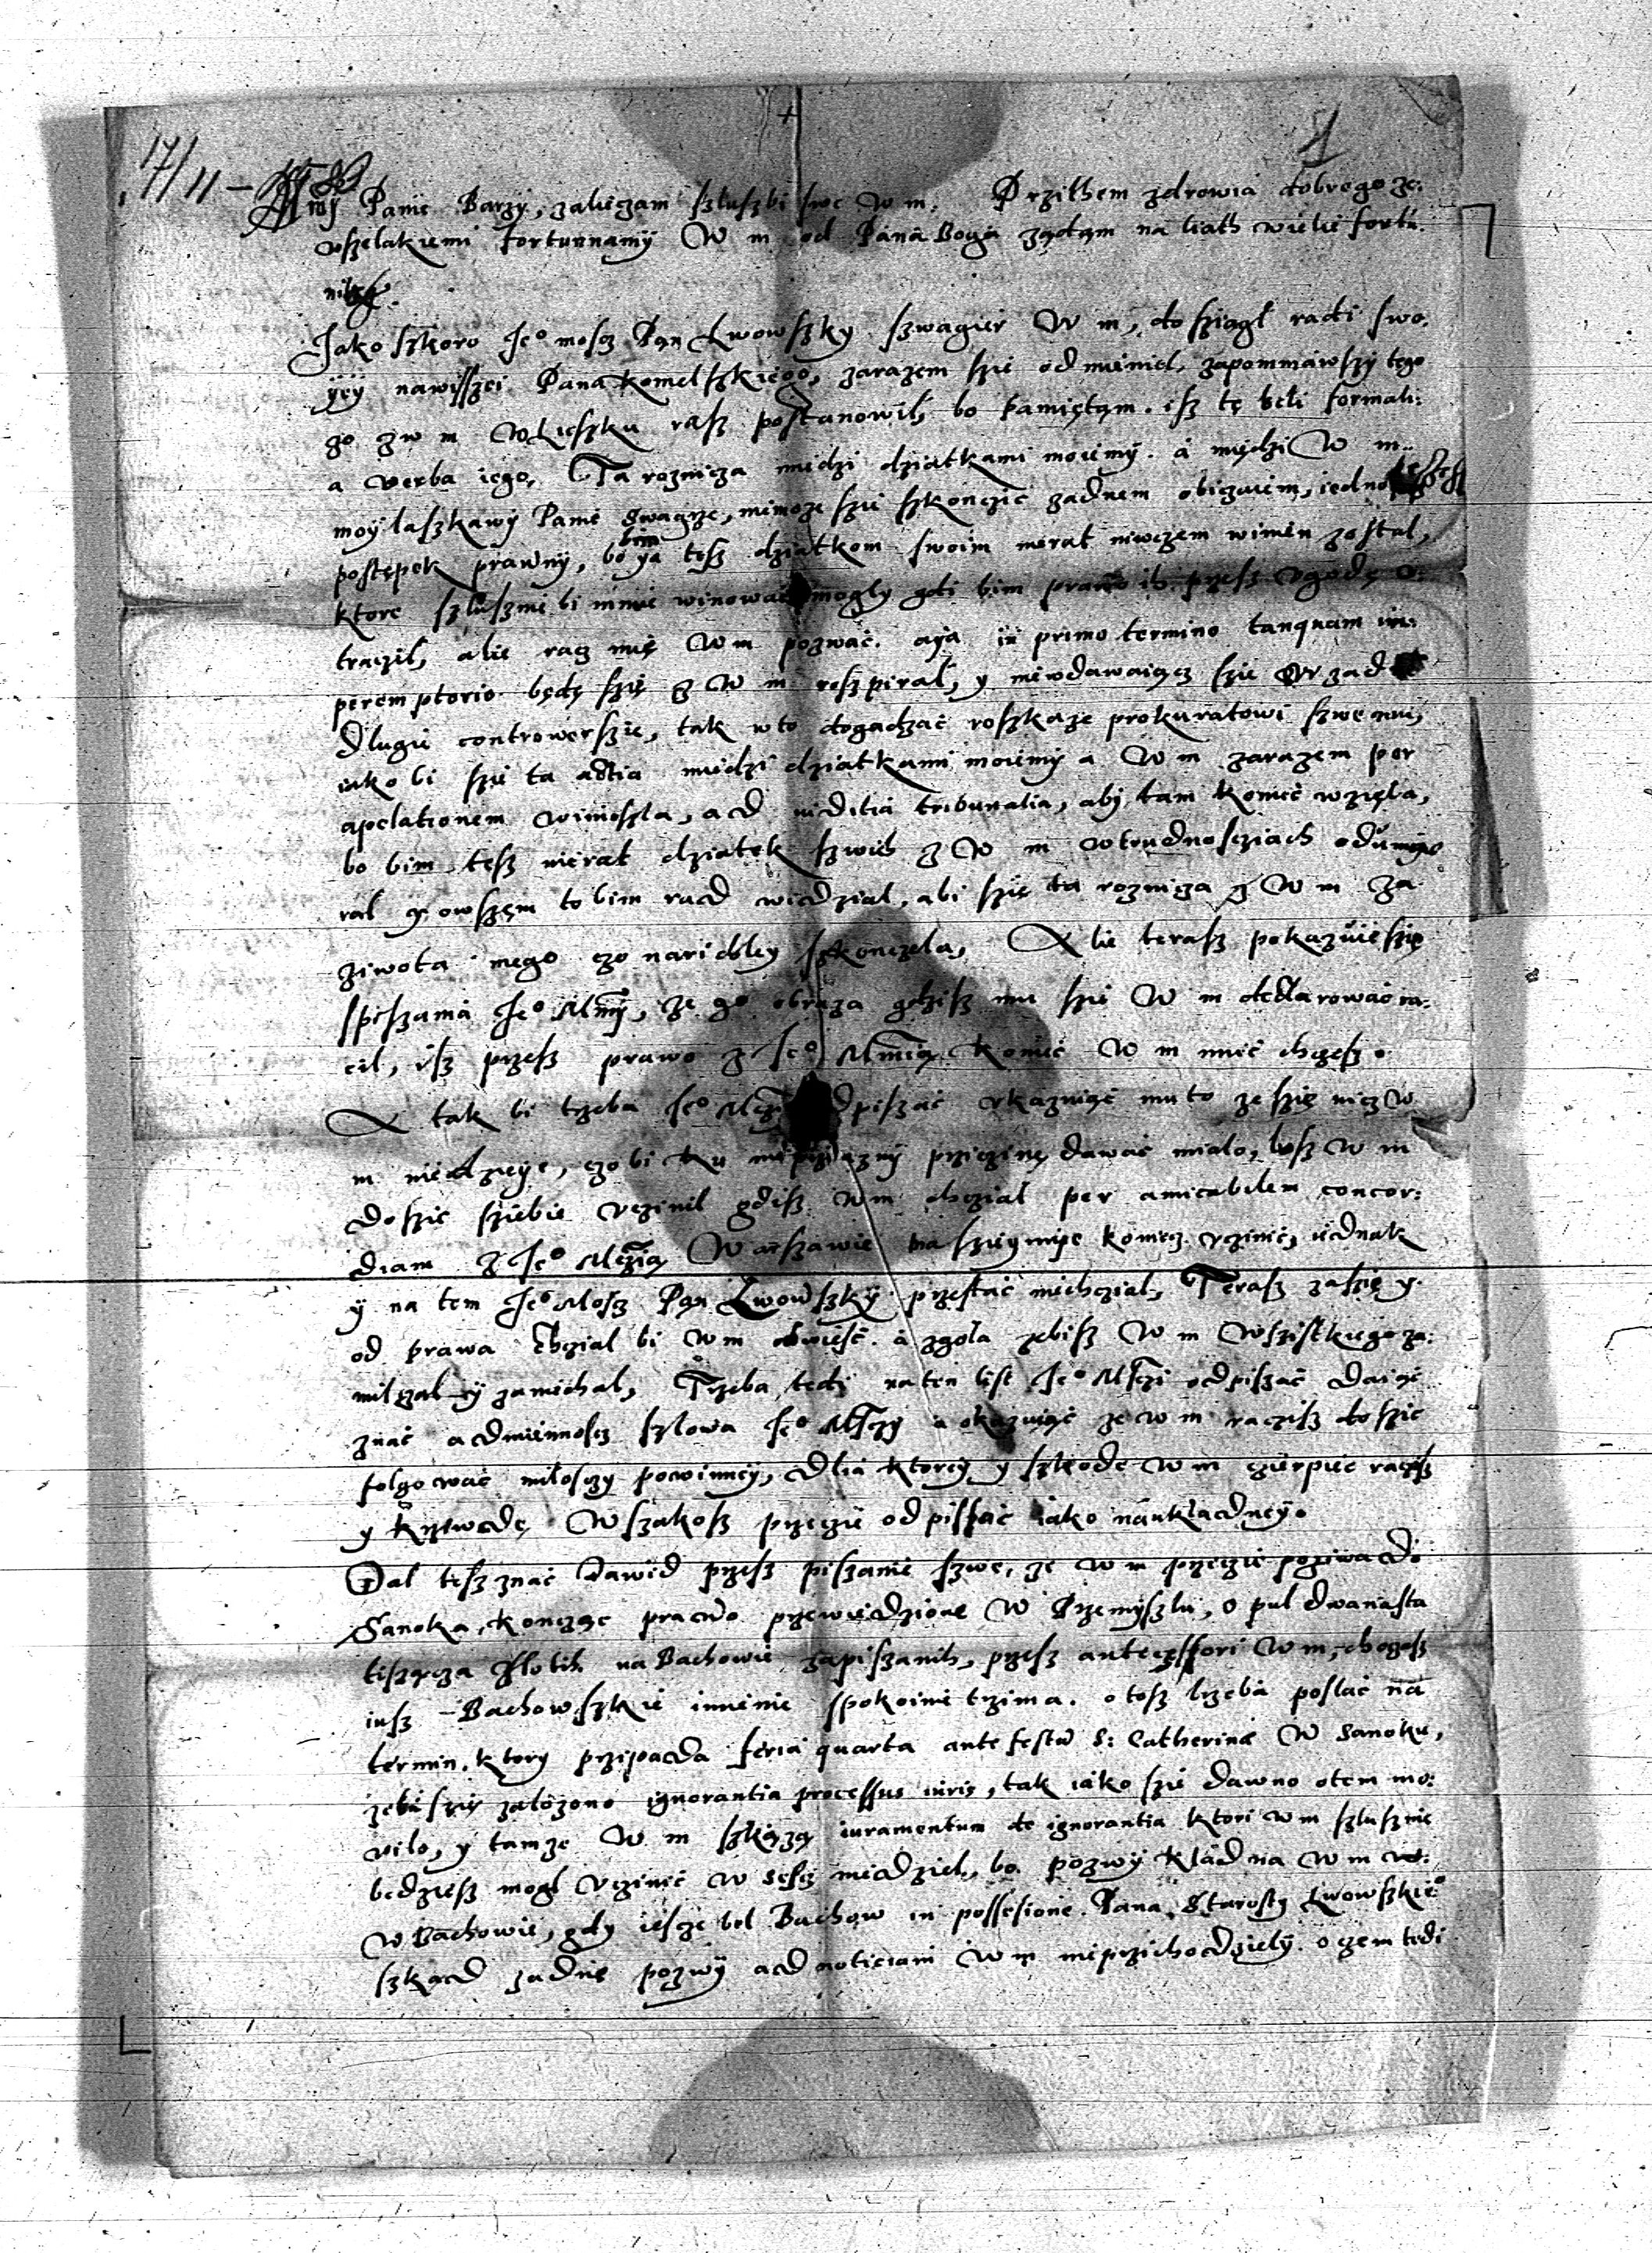 17/11 –
1
Moy Panie Barzy, zaliczam szluszbi swe W m. Przithem zdrowia dobrego ze:
wszelakiemi fortunnamÿ W m od Pana Boga ządąm na liath wielie fortu:
nih
Jako szkoro Je° mosz Pąn Lwowszky szwagier W m, dosziągł radi swo:
yęy nawisszei Pana Komelszkiego, zarazem szie odmieniel, zapommiawszy tego
go z w m W Lieszku rasz postanowil, bo pamiętąm. isz tę beli formali:
a verba iego, Ta roznicza miedzi dziatkami moiemÿ. a międzi W m.
moÿ laszkawÿ Panie Swagrze, niemoze szie szkonczic zadnem obiczaiem, iedno
postępek prawnÿ, bo bim ya tesz dziatkom swoim nierat niwczem winien zostal,
ktore szluszniebi mnie winowac mogly gdi bim prawo ih przesz vgodę v:
traczil, alie racz mię W m pozwac. aya in primo termino tanquam in:
peremptorio będę szię z W m roszpiral, y niewdawaiącz szie W zad
dlugie controwerszie, tak wto dogadzać roszkaze prokuratowi szwemu,
iako bi szie ta actia miedzi dziatkami moiemÿ a W m zarazem per
apelationem winioszla, ad iuditia tribunalia, abÿ tam koniec wzięla,
bo bim tesz nierat dziatek szwih z W m wtrudnosziach odumie
ral y owszęm tobim rad widzial, abi szię ta roznicza z W m za
ziwota mego czo naridbley szkonczela, Alie terasz pokazuie szię
spiszania Je° Mczÿ, ze go obraza gdzisz mu szie W m declarowac ra:
cil, isz przesz prawo z Je° Mczią koniec W m miec chczesz.
A tak bi trzeba Je° Mczi odpiszac vkazuiąc mu to ze szię nicz W
m niedzieye, czobi ku nieprziaznÿ prziczinę dawać mialo, bosz W m
doszic sziebie vczinil gdisz W m chczial per amicabilem concor:
diam z Je° Mczią Warszawie na szeymie koniecz vczinic, iednak
ÿ na tem Je° Mosz Pąn Lwowszkÿ przestac niechczial, Terasz zaszię y
od prawa chczial bi W m odwiesc. a zgola zebisz W m Wszistkiego za:
milczal ÿ zaniechal, Trzeba tedi naten list Je° Msczi odpiszac daiąc
znac admiennosz szlowa Je° Msczy a okazuiąc ze W m raczisz doszic
folgowac miloszy powinneÿ, dlia ktorey y szkode W m czierpiec raczisz
y krziwdę Wszakosz przeczie odpiszac iako naukladneÿ.
Dal tesz znac Dawid przesz piszanie szwe, ze W m przeczie pozwą do
Sanoka, konczące prawo przewiedzione W Przemÿszlu, o pul dwanasta
tisząca Zlotih na Bachowie zapiszanih, przesz anteczessori W m, chocosz
iusz Bachowszkie imienie spokoinie trzima. otosz trzeba poslac na
termin, ktory przipada feria quarta ante festu S: Catherinæ W Sanoku,
zebi szię zalozono ignorantia processus iuris, tak iako szie dawno otem mo:
vilo, y tamze W m szkązą iuramentum de ignorantia ktori W m szlusznie
bedziesz mogl vczinic W szesz niedziel, bo pozwÿ klad na W m
W Bachowie, gdy iescze bel Bachow in possesione. Pana Starosty Lwowszkie°
szkąd zadnę pozwÿ ad noticiam W m nieprzichodzielÿ. oczem tedi